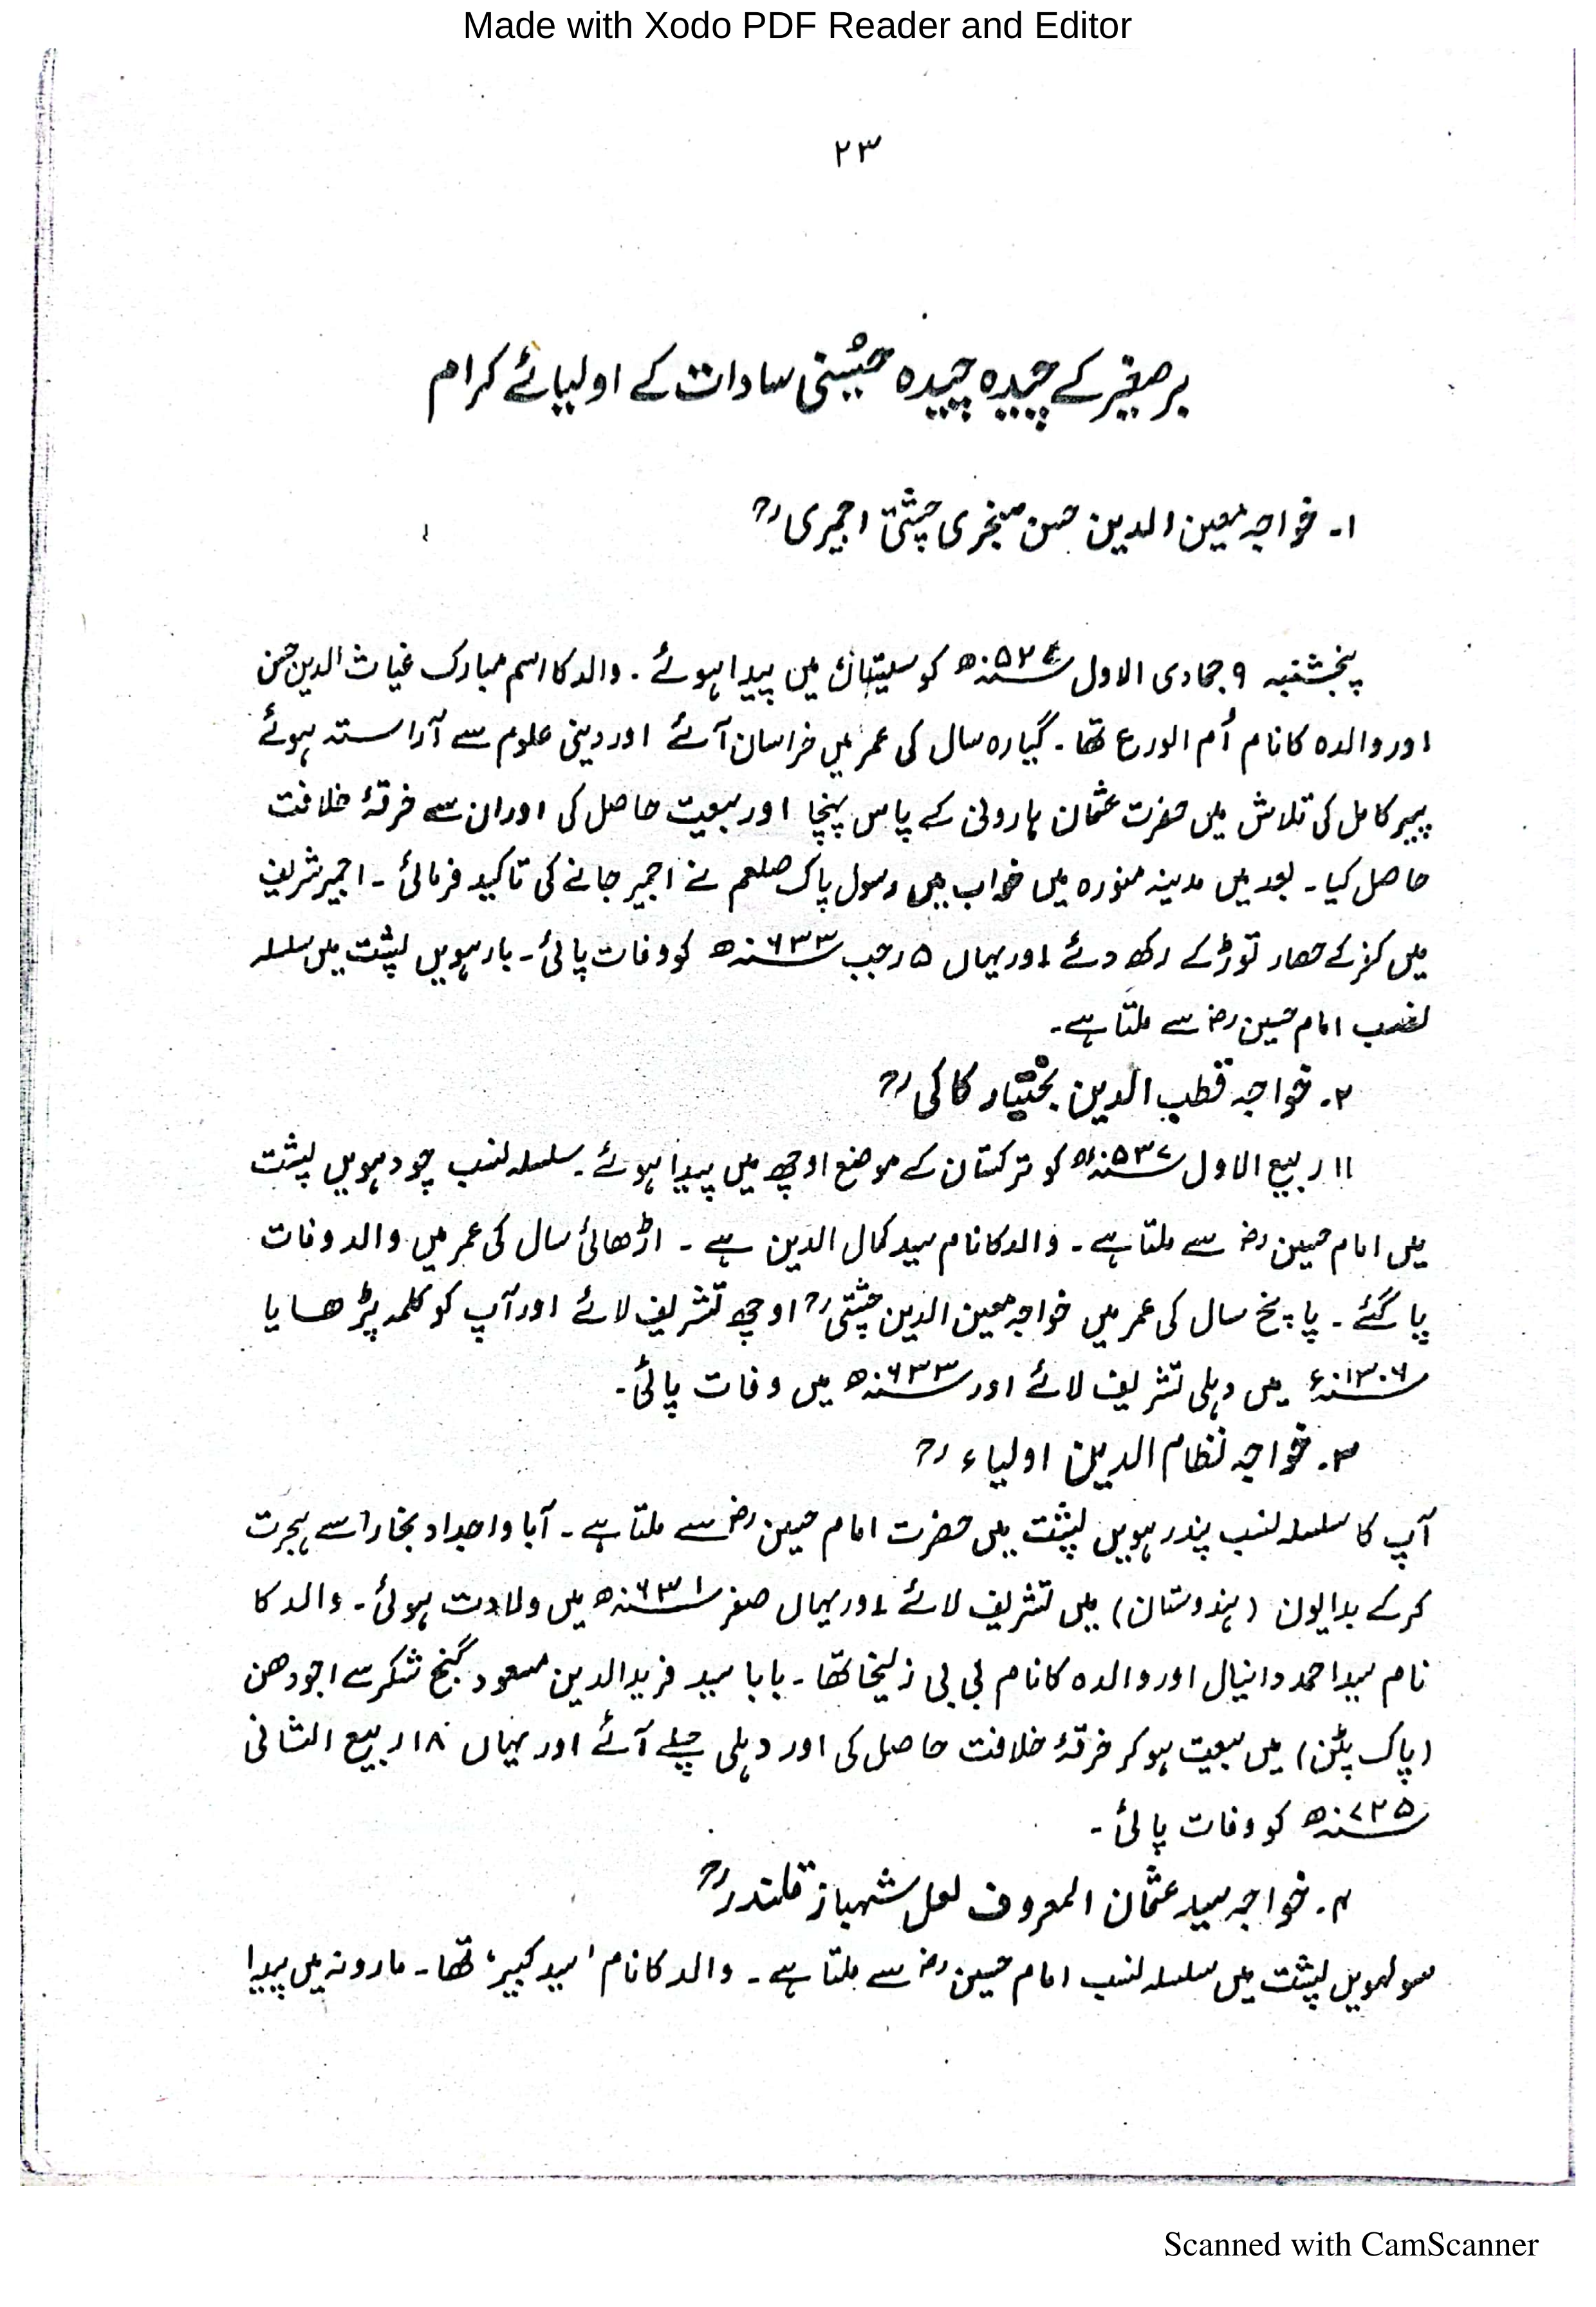 Made with Xodo PDF Reader and Editor
۲۳
برصغیر کے چیدہ چیدہ حُسینی سادات کے اولیائے کرام
۱۔ خواجہ معین الدین حسن سنجری چشتی اجمیریؒ
پنجشنبہ ۹ جمادی الاول کو سیستان میں پیدا ہوئے ۔ والد کا اسم مبارک غیاث الدین حسن
اور والدہ کا نام اُم الورع تھا ۔ گیارہ سال کی عمر میں خراسان آئے اور دینی علوم سے آراستہ ہوئے
پیر کامل کی تلاش میں حضرت عثمان ہارونی کے پاس پہنچا اور بیعت حاصل کی اور ان سے خرقۂ خلافت
حاصل کیا ۔ بعد میں مدینہ منورہ میں خواب میں رسول پاک صلعم نے اجمیر جانے کی تاکید فرمائی ۔ اجمیر شریف
میں کفر کے حصار توڑ کے رکھ دئے اور یہاں ۵ رجب ۶۳۳ھ کو وفات پائی ۔ بارہویں پشت میں سلسلہ
نسب امام حسین رض سے ملتا ہے ۔
۲۔ خواجہ قطب الدین بختیار کاکیؒ
۱۱ ربیع الاول ۵۳۷ھ کو ترکستان کے موضع اوچھ میں پیدا ہوئے ۔ سلسلہ نسب چودہویں پشت
میں امام حسین رض سے ملتا ہے ۔ والد کا نام سید کمال الدین ہے ۔ اڑھائی سال کی عمر میں والد وفات
پا گئے ۔ پانچ سال کی عمر میں خواجہ معین الدین چشتیؒ اوچھ تشریف لائے اور آپ کو کلمہ پڑھایا
۱۳۰۶ء میں دہلی تشریف لائے اور ۶۳۳ھ میں وفات پائی ۔
۳۔ خواجہ نظام الدین اولیاءؒ
آپ کا سلسلہ نسب پندرہویں پشت میں حضرت امام حسین رض سے ملتا ہے ۔ آبا و اجداد بخارا سے ہجرت
کر کے بدایون (ہندوستان) میں تشریف لائے اور یہاں صفر ۶۳۱ھ میں ولادت ہوئی ۔ والد کا
نام سید احمد دانیال اور والدہ کا نام بی بی زلیخا تھا ۔ بابا سید فرید الدین مسعود گنج شکر سے اجودھن
(پاک پٹن) میں بیعت ہو کر خرقۂ خلافت حاصل کی اور دہلی چلے آئے اور یہاں ۱۸ ربیع الثانی
۷۲۵ھ کو وفات پائی ۔
۴۔ خواجہ سید عثمان المعروف لعل شہباز قلندرؒ
سولہویں پشت میں سلسلہ نسب امام حسین رض سے ملتا ہے ۔ والد کا نام 'سید کبیر' تھا ۔ مارونہ میں پیدا
Scanned with CamScanner